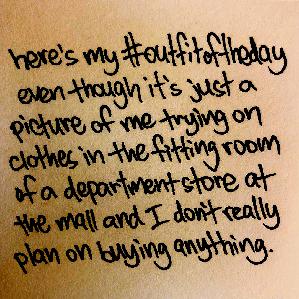 here's my #outfitoftheday
even though it's just a
picture of me trying on
clothes in the fitting room
of a department store at
the mall and I don't really
plan on buying anything.